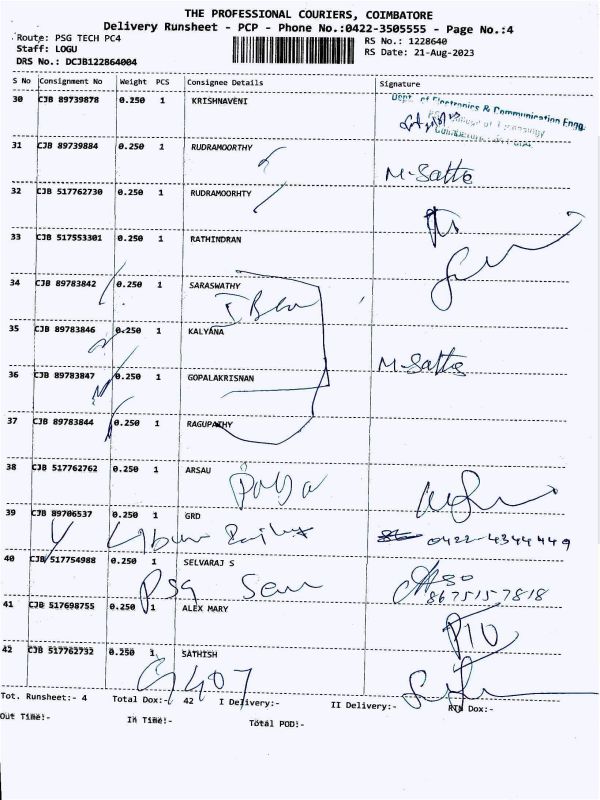 THE PROFESSIONAL COURIERS, COIMBATORE
Delivery Runsheet - PCP - Phone No.:0422-3505555 - Page No.:4
Route: PSG TECH PC4
RS No.: 1228640
Staff: LOGU
RS Date: 21-Aug-2023
DRS No.: DCJB122864004
S No Consignment No Weight PCS Consignee Details Signature
30 CJB 89739878 0.250 1 KRISHNAVENI
Dept. of Electronics & Communication Engg.
31 CJB 89739884 0.250 1 RUDRAMOORTHY
M-Sattu
32 CJB 517762730 0.250 1 RUDRAMOORHTY
33 CJB 517553301 0.250 1 RATHINDRAN
34 CJB 89783842 0.250 1 SARASWATHY
35 CJB 89783846 0.250 1 KALYANA
M-Sattu
36 CJB 89783847 0.250 1 GOPALAKRISNAN
37 CJB 89783844 0.250 1 RAGUPATHY
38 CJB 517762762 0.250 1 ARSAU
39 CJB 89706537 0.250 1 GRD
0422-4344449
40 CJB 517754988 0.250 1 SELVARAJ S
PSG
8675157818
41 CJB 517698755 0.250 1 ALEX MARY
42 CJB 517762732 0.250 1 SATHISH
G 407
Tot. Runsheet:- 4 Total Dox:- 42 I Delivery:- II Delivery:- RTN Dox:-
Out Time:- In Time:- Total POD:-